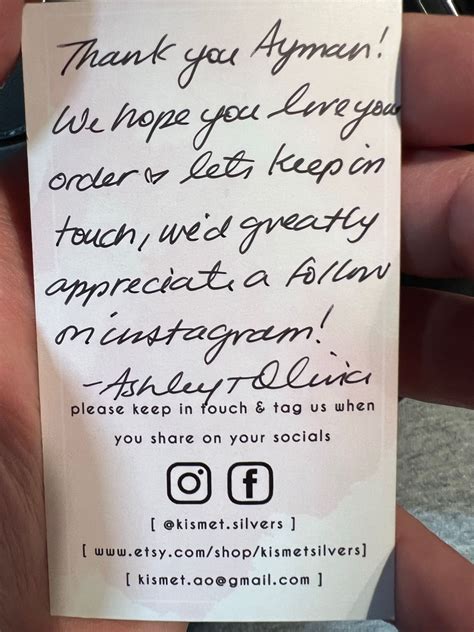 Thank you Ayman!
We hope you love your
order ♡ lets keep in
touch, we'd greatly
appreciate a follow
on instagram!
-Ashley + Olivia
please keep in touch & tag us when
you share on your socials
[ @kismet.silvers ]
[ www.etsy.com/shop/kismetsilvers]
[ kismet.ao@gmail.com ]